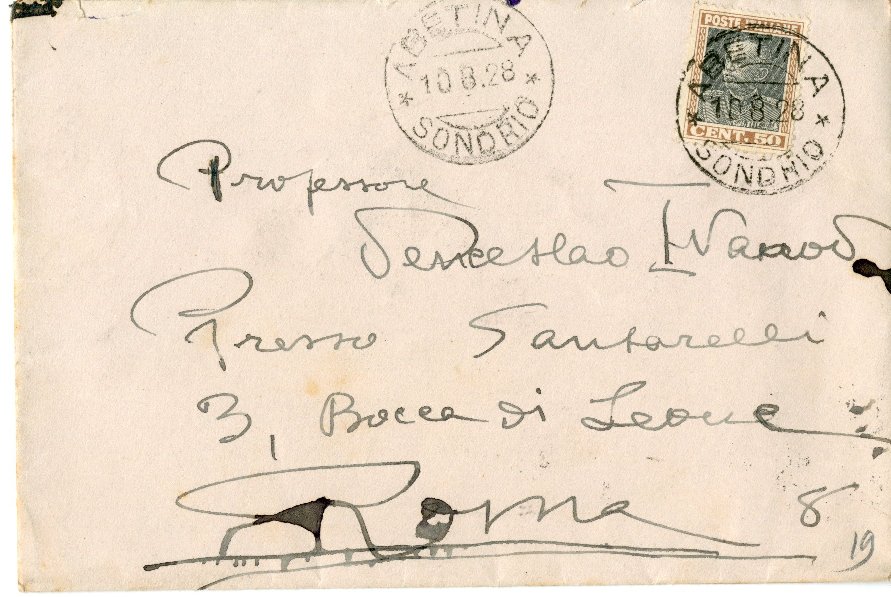 ABETINA
10.8.28
* SONDRIO *
POSTE
CENT. 50
ABETINA
10.8.28
* SONDRIO *
Professore
Venceslao Ivanov
Presso Santarelli
3, Bocca di Leone
Roma 8
19